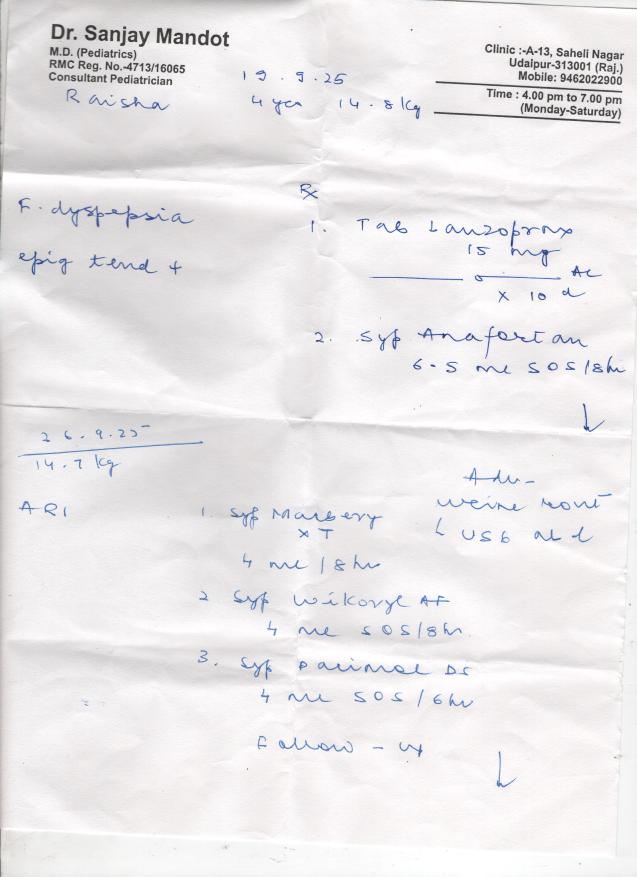 Dr. Sanjay Mandot
M.D. (Pediatrics)
RMC Reg. No.-4713/16065
Consultant Pediatrician
Clinic :-A-13, Saheli Nagar
Udaipur-313001 (Raj.)
Mobile: 9462022900
Time : 4.00 pm to 7.00 pm
(Monday-Saturday)
19.9.25
Raisha 4 yrs 14.8 kg
F. dyspepsia
epig tend +
Rx
1. Tab
15 mg
AC
x 10 d
2. Syp Anafortan
6.5 ml SOS/8hr
26.9.25
14.7 kg
ARI
Adv-
Urine rout
USG
1. Syp
x T
4 ml/8hr
2 Syp Wikoryl AF
4 ml SOS/8hr
3. Syp DS
4 ml SOS/6hr
Follow - up